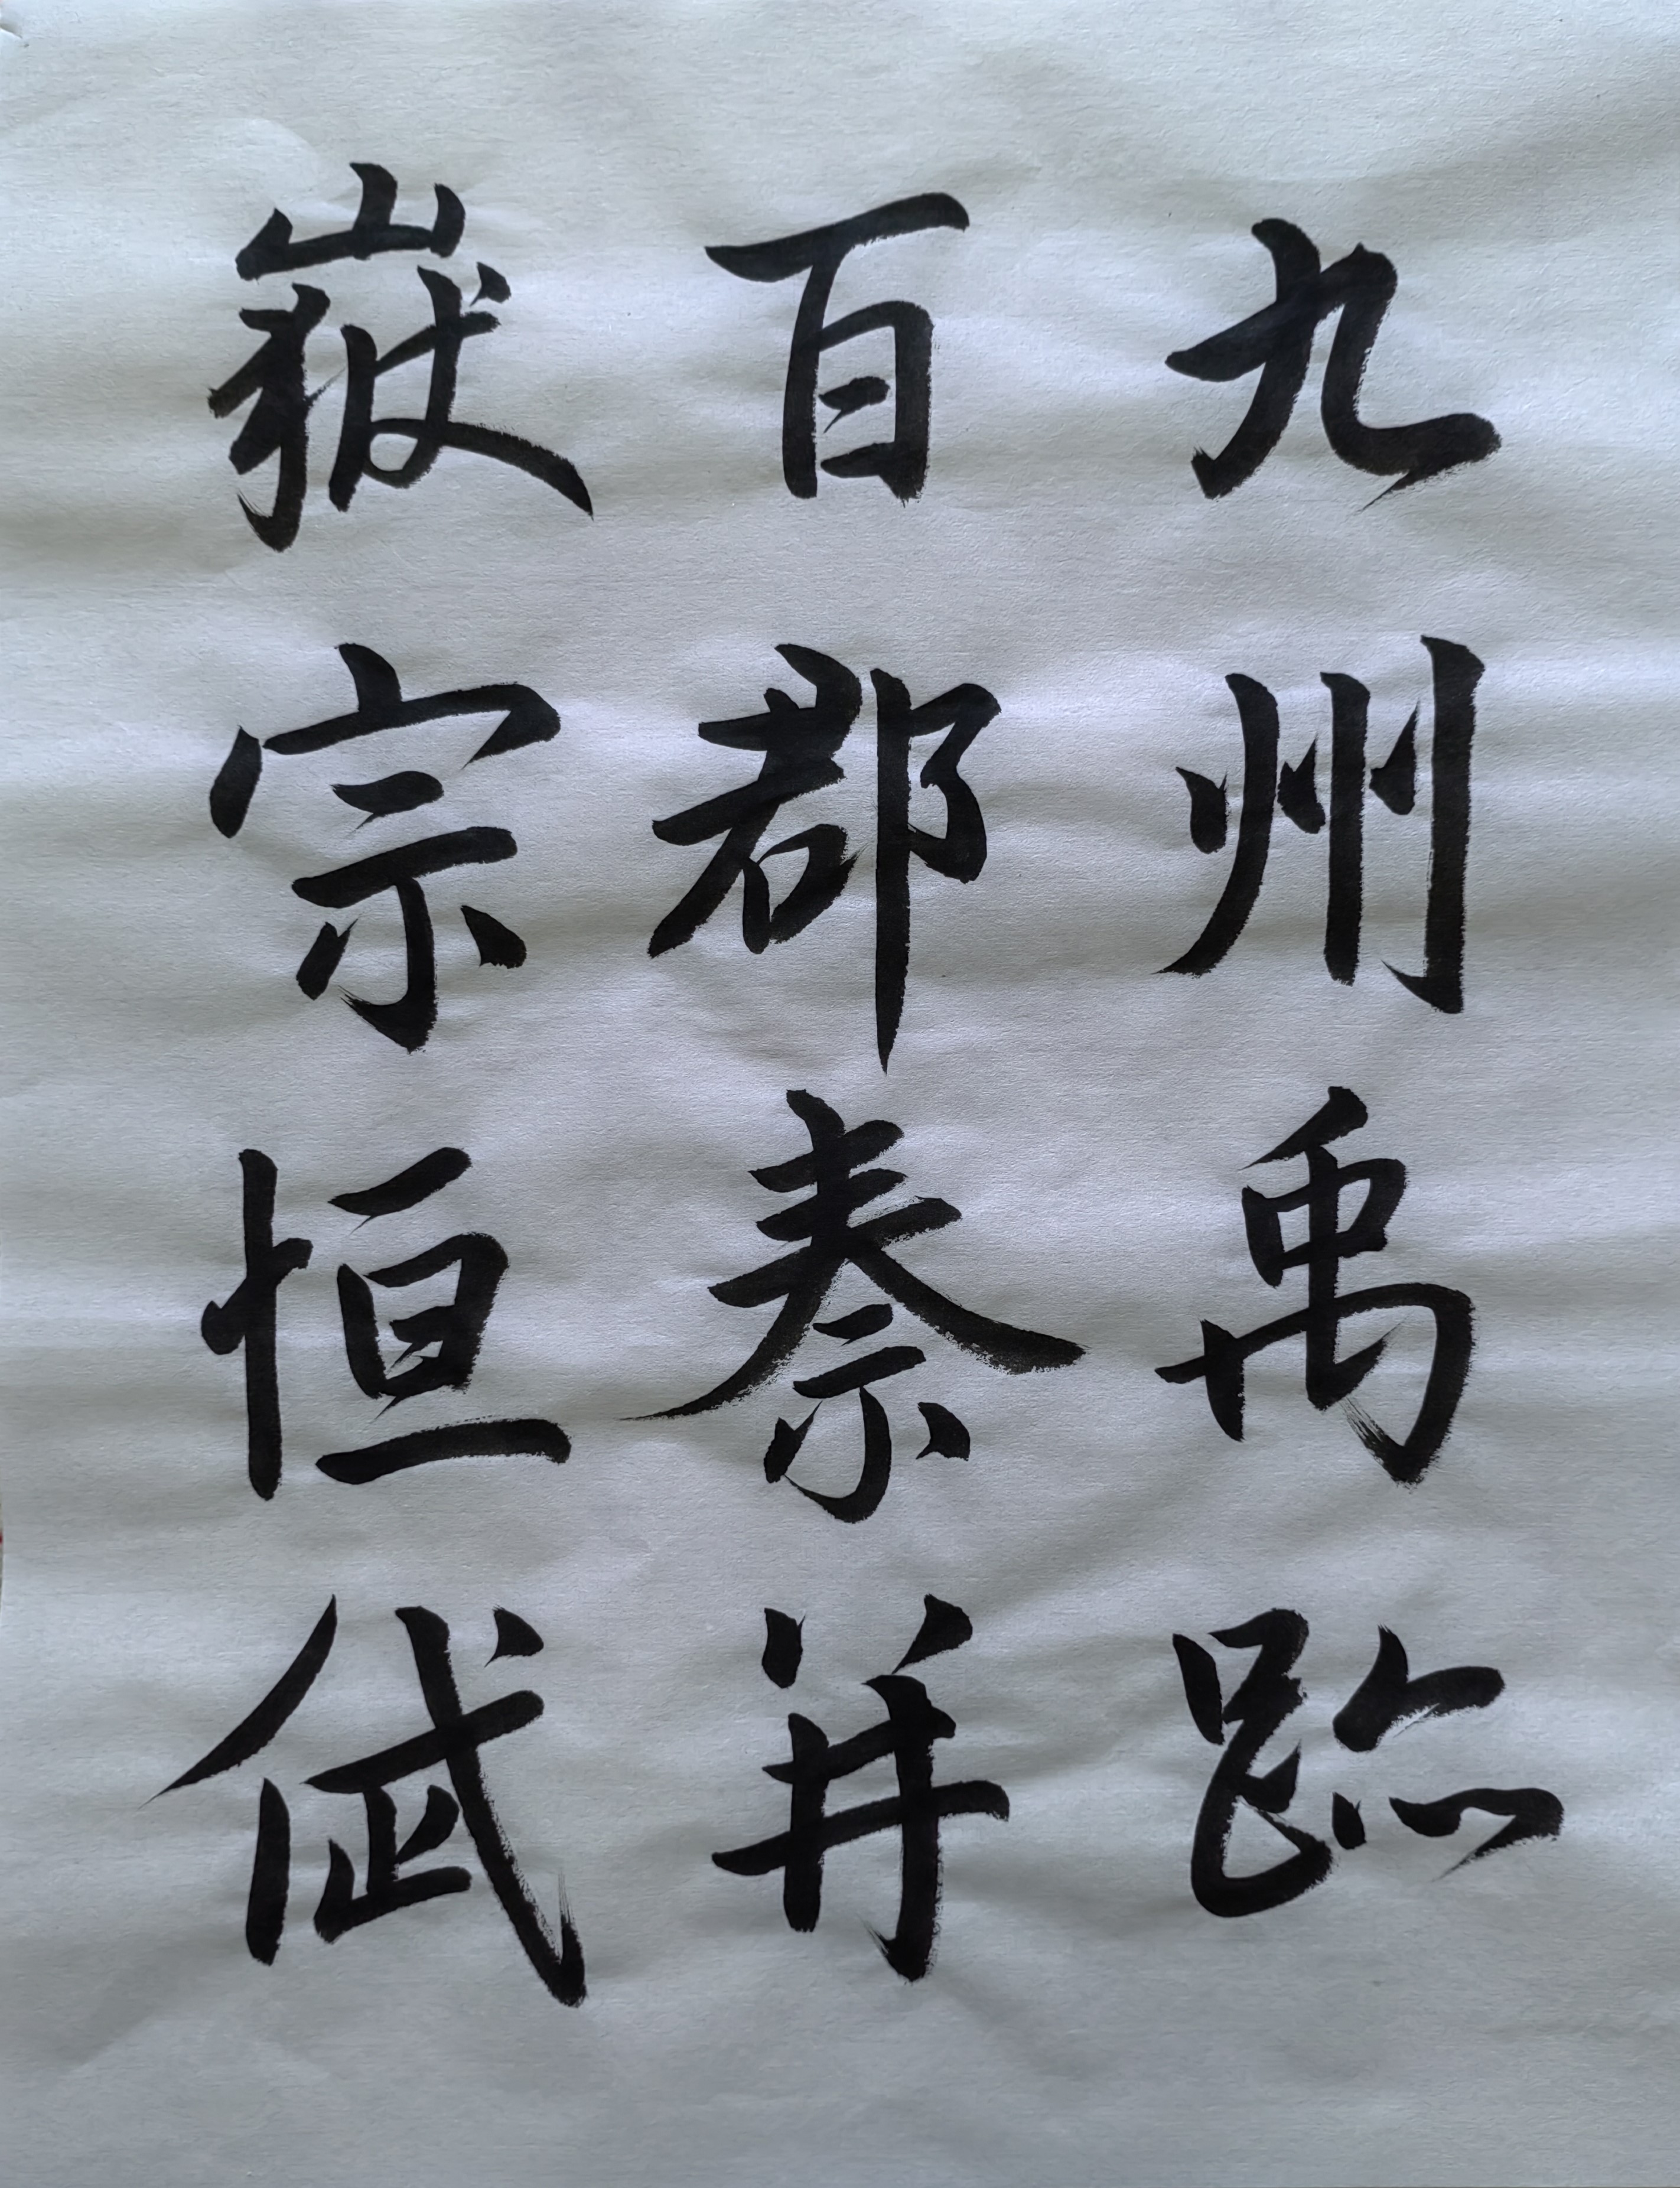 九州禹跡
百郡秦并
嶽宗恒岱